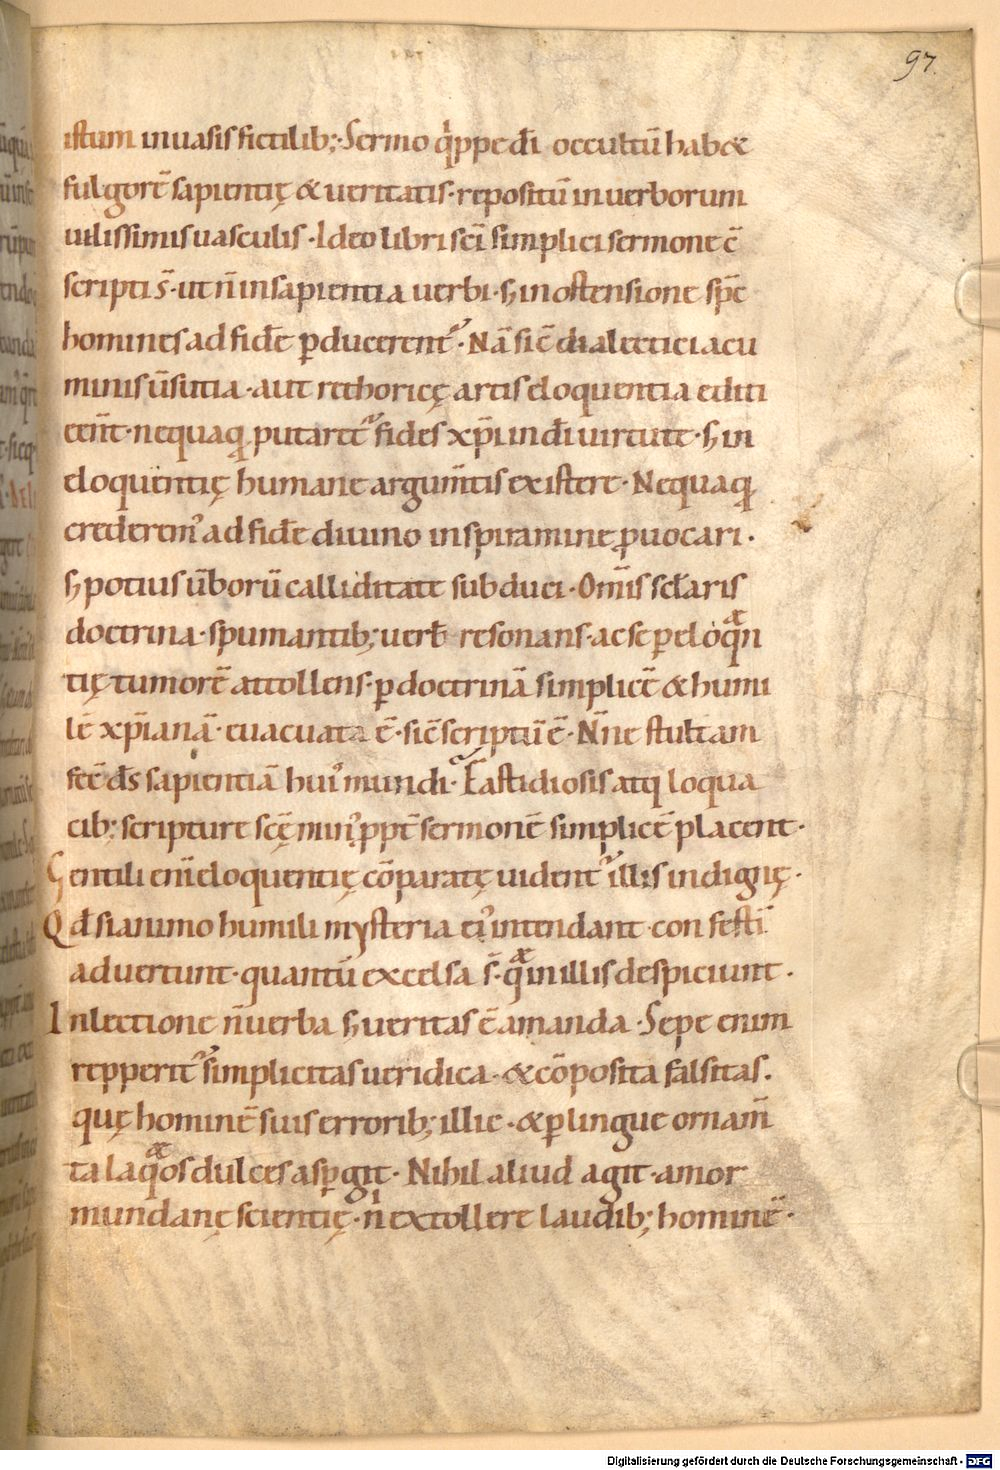 97.
istum in uasis fictilib;· Sermo q̇ppe dī occultū hab&
fulgorē sapientię & ueritatis· repositū in uerborum
uilissimis uasculis· Ideo libri scī simplici sermone cō̄
scripti s̄· ut n̄ in sapientia uerbi· ꜱ; in ostensione sp̄c
homines ad fidē ꝑducerent᷑· Nā sic̄ dialectici acu
minis ūsutia· aut rethoricę artis eloquentia editi
eēnt· nequaq; putaret᷑ fides xp̄i in dī uirtute· ꜱ; in
eloquentię humane argum̄tis existere· Nequaq;
crederem᷒ ad fidē diuino inspiramine ꝓuocari·
ꜱ; potius ūborū calliditate subduci· Om̄is sc̄laris
doctrina· spumantib; uerb̄ resonans· ac se ꝑ eloqͣn
tię tumorē attollens· ꝑ doctrinā simplicē & humi
lē xp̄ianā· euacuata ē· sic̄ scriptū ē· Nn̄e stultam
fec̄ ds̄ sapientiā hui᷒ mundi· Fastidiosis atq; loqua
cib; scripture scę̄ min᷒ ꝓpt̄ sermonē simplicē placent·
Gentili enī eloquentię cōparatę uident᷑ illis indignę·
Qd̄ si animo humili mysteria ei᷒ intendant· confestī
aduertunt· quantū excelsa s̄· qͣ in illis despiciunt·
In lectione n̄ uerba ꜱ; ueritas ē amanda· Sepe enim
repperit᷑ simplicitas ueridica· & cōposita falsitas·
quę hominē suis errorib; illic· & ꝑ lingue ornam̄
ta laqͣos dulces aspgit· Nihil aliud agit· amor
mundanę scientię· nⁱ extollere laudib; hominē·
Digitalisierung gefördert durch die Deutsche Forschungsgemeinschaft - DFG